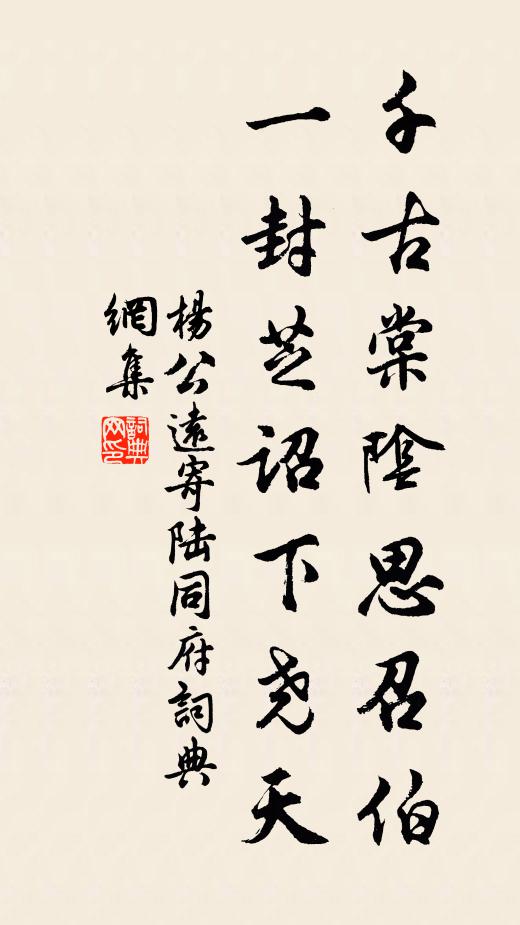 千古棠陰思召伯
一封芝詔下尧天
楊公遠寄陸同府詞典
網集
詞典
网印